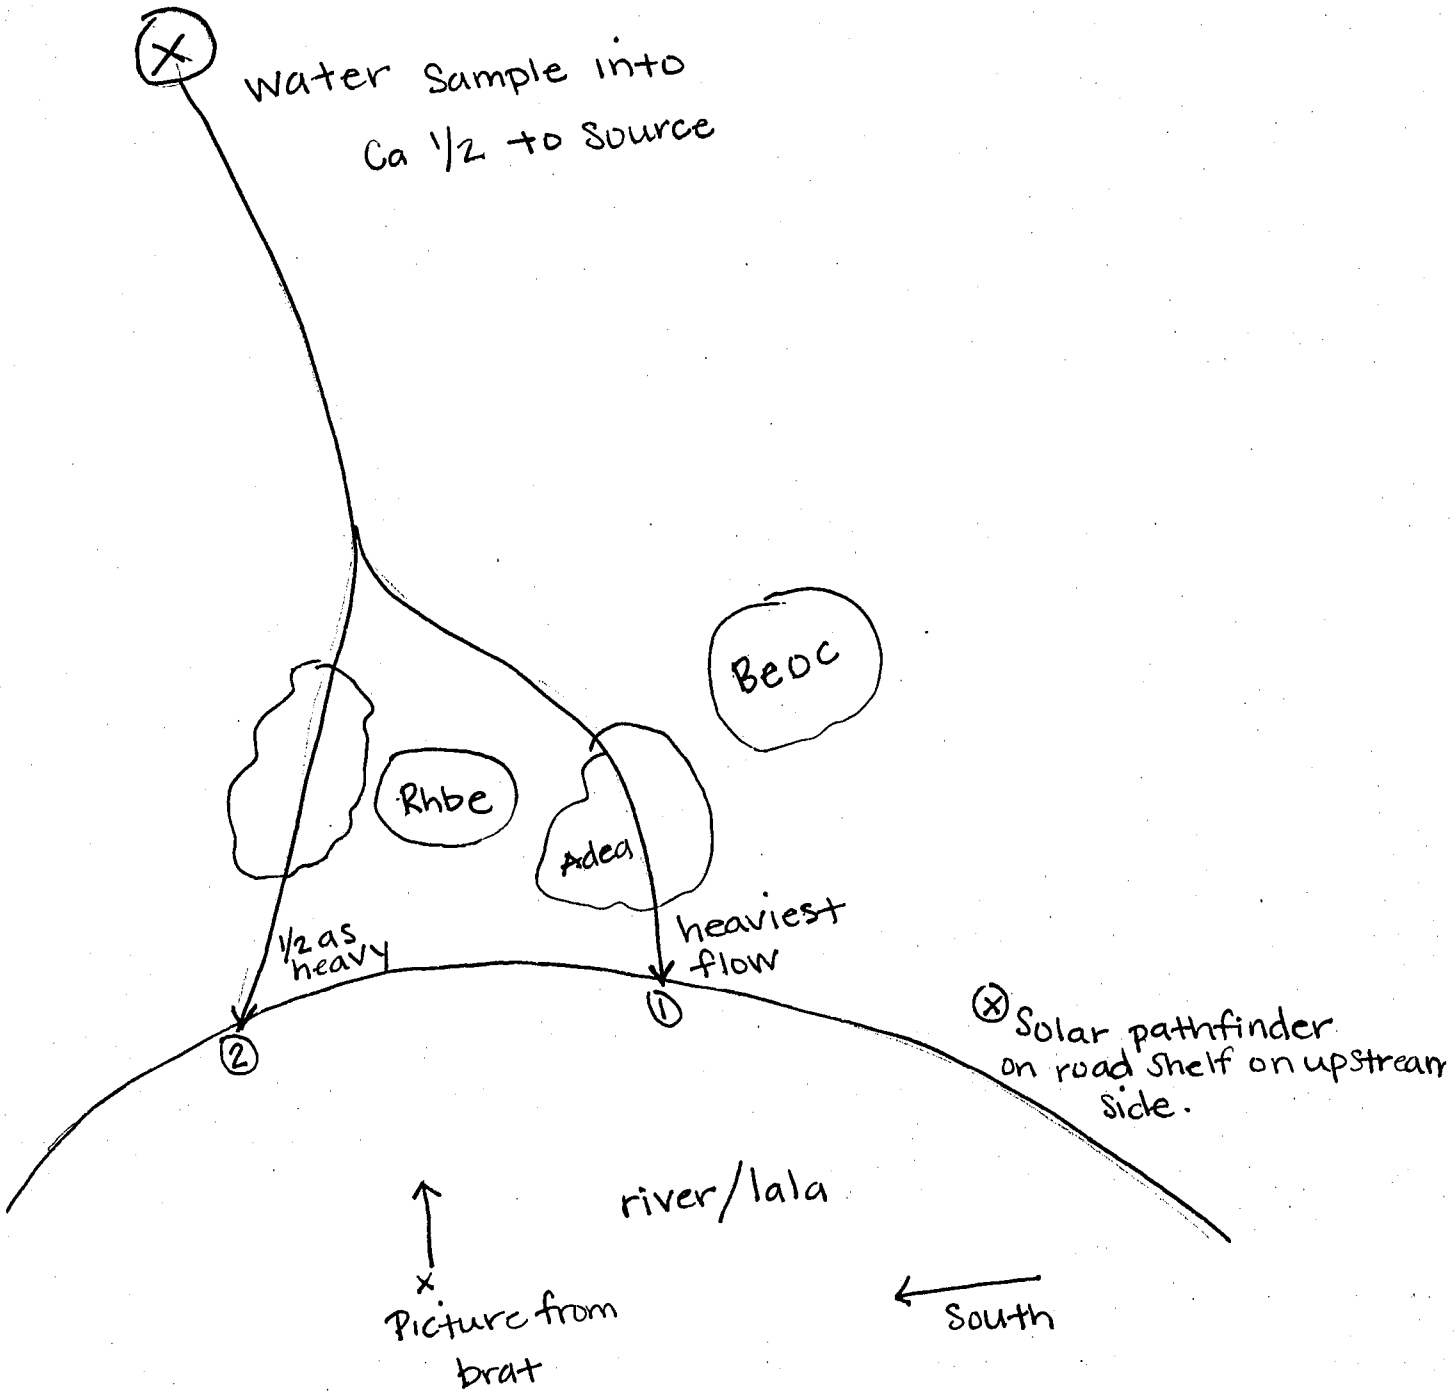 X
Water Sample into
Ca 1/2 to Source
BeOC
Rhbe
Adea
1/2 as
heavy
heaviest
flow
1
2
X
Solar pathfinder
on road shelf on upstream
side.
river/lala
x
Picture from
brat
South